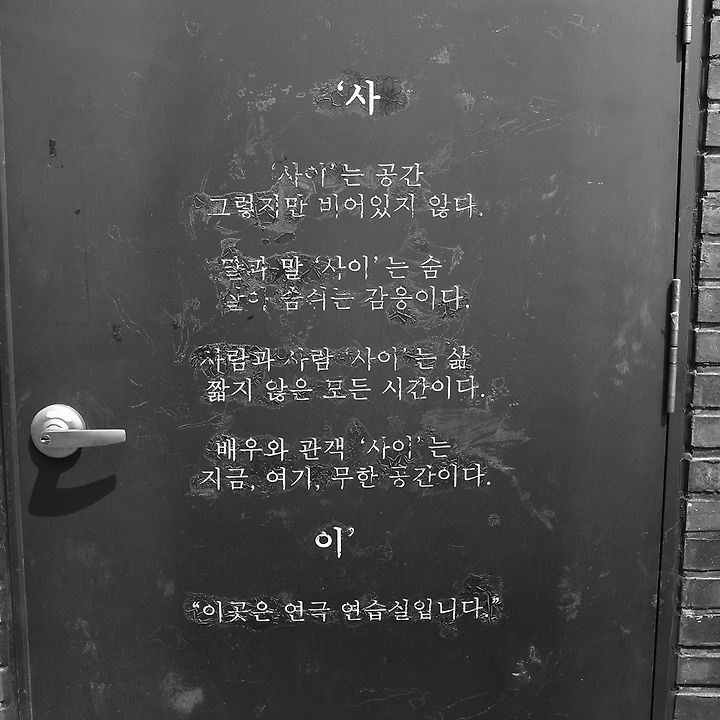 ‘사
‘사이’는 공간
그렇지만 비어있지 않다.
말과 말 ‘사이’는 숨
살아 숨쉬는 감응이다.
사람과 사람 ‘사이’는 삶
짧지 않은 모든 시간이다.
배우와 관객 ‘사이’는
지금, 여기, 무한 공간이다.
이’
“이곳은 연극 연습실입니다.”